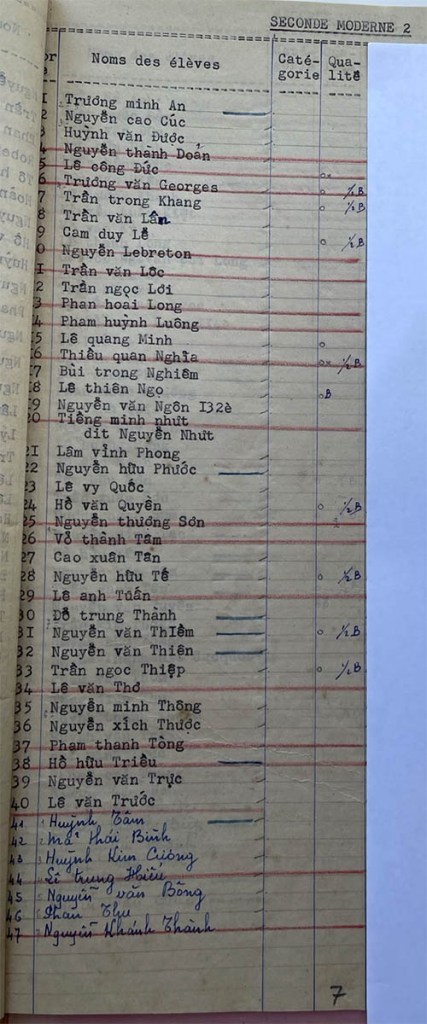 SECONDE MODERNE 2
Noms des élèves Caté- Qua-
gorie lité
I Trương minh An
2 Nguyễn cao Cúc
3 Huỳnh văn Được
4 Nguyễn thành Doán
5 Lê công Đức
6 Trương văn Georges ½ B
7 Trần trong Khang ½ B
8 Trần văn Lân
9 Cam duy Lễ ½ B
0 Nguyễn Lebreton
I Trần văn Lôc
2 Trần ngọc Lơi
3 Phan hoai Long
4 Pham huỳnh Luông
5 Lê quang Minh
6 Thiều quan Nghĩa ½ B
I7 Bùi trong Nghiêm
I8 Lê thiên Ngọ B
I9 Nguyễn văn Ngôn I32è
20 Tiêng minh nhứt
dit Nguyễn Nhưt
2I Lâm vĩnh Phong
22 Nguyễn hữu Phước
23 Lê vy Quốc
24 Hồ văn Quyền ½ B
25 Nguyễn thương Sơn
26 Võ thành Tâm
27 Cao xuân Tân
28 Nguyễn hữu Tế ½ B
29 Lê anh Tuấn
30 Đỗ trung Thành
3I Nguyễn văn Thiềm ½ B
32 Nguyễn văn Thiên
33 Trần ngoc Thiệp ½ B
34 Lê văn Thơ
35 Nguyễn minh Thông
36 Nguyễn xích Thược
37 Phạm thanh Tòng
38 Hồ hữu Triều
39 Nguyễn văn Trực
40 Lê văn Trước
41 Huỳnh Tâm
42 Mã thái Bình
43 Huỳnh Kim Cương
44 Lê trung Hiếu
45 Nguyễn văn Bông
46 Phan Thu
47 Nguyễn Khánh Thành
7